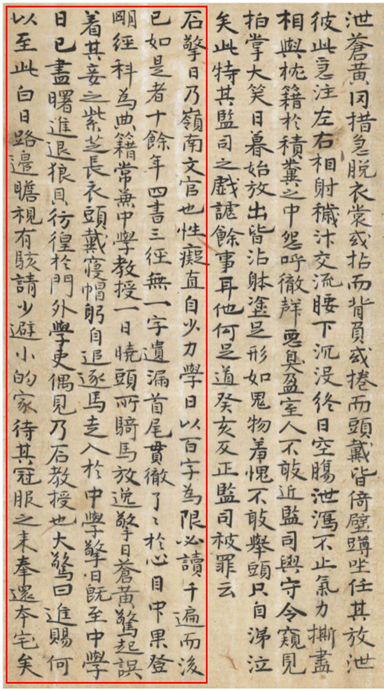 泄蒼黃罔措急脫衣裳或拈而背負或捲而頭戴皆倚壁蹲坐任其放泄
彼此急注左右相射穢汁交流腰下沉浸終日空膓泄瀉不止氣力撕盡
相與枕籍於積糞之中怨呼徹群惡臭盈室人不敢近監司與守令窺見
拍掌大笑日暮始放出皆沾躰塗足形如鬼物羞愧不敢擧頭只自涕泣
矣此特其監司之戱謔餘事耳他何足道癸亥反正監司被罪云
石擎日乃嶺南文官也性癡直自少力學日以百字為限必讀千遍而後
已如是者十餘年四書三經無一字遺漏首尾貫徹了〻於心目中果登
明經科為典籍常兼中學教授一日曉頭所騎馬放逸擎日蒼黃驚起誤
着其妾之紫芝長衣頭戴寢帽躬自追逐馬走入於中學擎日旣至中學
日已盡曙進退狼貝彷徨於門外學吏偶見乃石教授也大驚曰進賜何
以至此白日路邊瞻視有駭請少避小的家待其冠服之來奉還本宅矣